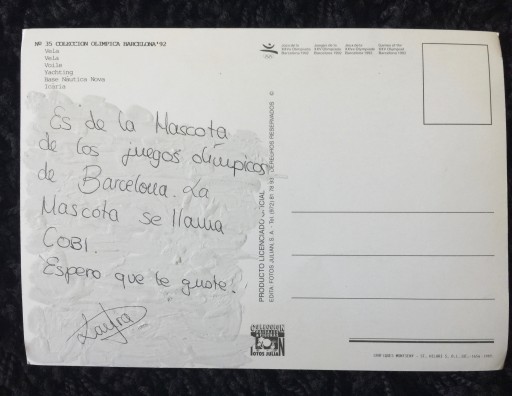 Nº 35 COLECCION OLIMPICA BARCELONA'92
Vela
Vela
Voile
Yachting
Base Nàutica Nova
Icària
Es de la Mascota
de los juegos olímpicos
de Barcelona. La
Mascota se llama
COBI.
Espero que te guste!
Laura
PRODUCTO LICENCIADO OFICIAL
EDITA FOTOS JULIAN S. A. - Tel. (972)
DERECHOS RESERVADOS ©
COLECCION
FOTOS JULIAN